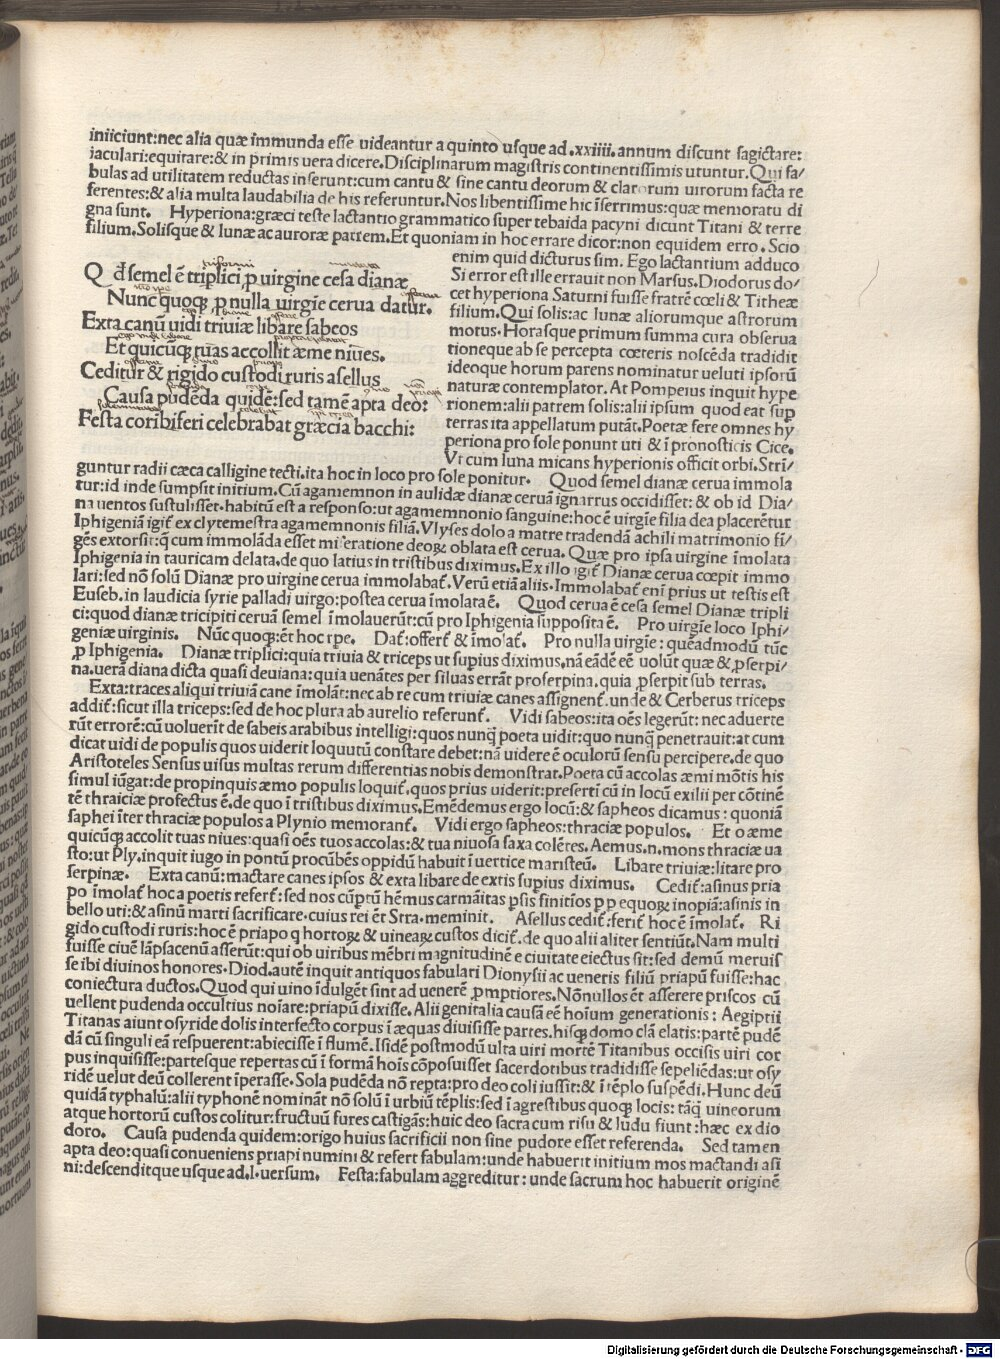 iniiciunt:nec alia quæ immunda esse uideantur a quinto usque ad .xxiiii. annum discunt sagictare:
iaculari:equitare:& in primis uera dicere. Disciplinarum magistris continentissimis utuntur. Qui fa/
bulas ad utilitatem reductas inserunt:cum cantu & sine cantu deorum & clarorum uirorum facta re
ferentes:& alia multa laudabilia de his referuntur. Nos libentissime hic īserrimus:quæ memoratu di
gna sunt. Hyperiona:græci teste lactantio grammatico super tebaida pacyni dicunt Titani & terre
filium. Solisque & lunæ ac auroræ patrem. Et quoniam in hoc errare dicor:non equidem erro. Scio
enim quid dicturus sim. Ego lactantium adduco
Si error est ille errauit non Marsus. Diodorus do/
cet hyperiona Saturni fuisse fratrē cœli & Titheæ
filium. Qui solis:ac lunæ aliorumque astrorum
motus. Horasque primum summa cura obserua
tioneque ab se percepta cœteris noscēda tradidit
ideoque horum parens nominatur ueluti ipsorū
naturæ contemplator. At Pompeius inquit hype
rionem:alii patrem solis:alii ipsum quod eat sup
terras ita appellatum putāt. Poetæ fere omnes hy
periona pro sole ponunt uti & ī pronosticis Cice.
Vt cum luna micans hyperionis officit orbi. Strī/
Q d̄ semel ē triplici ꝑ uirgine cesa dianæ
Nunc quoqꝫ ꝓ nulla uirgīe cerua datur.
Exta canū uidi triuiæ libare sabeos
Et quicūqꝫ tuas accollit æme niues.
Ceditur & rigido custodi ruris asellus
Causa pudēda quidē:sed tamē apta deo:
Festa coribiferi celebrabat græcia bacchi:
guntur radii cæca calligine tecti. ita hoc in loco pro sole ponitur. Quod semel dianæ cerua immola
tur:id inde sumpsit initium. Cū agamemnon in aulidæ dianæ ceruā ignarrus occidisset:& ob id Dia/
na uentos sustulisset. habitū est a responso:ut agamemnonio sanguine:hoc ē uirgīe filia dea placerētur
Iphigeniā igit̄ ex clytemestra agamemnonis filiā. Vlyses dolo a matre tradendā achili matrimonio fi/
gēs extorsit:q̄ cum immolāda esset miseratione deoꝝ oblata est cerua. Quæ pro ipsa uirgine īmolata
Iphigenia in tauricam delata. de quo latius in tristibus diximus. Ex illo igit̄ Dianæ cerua cœpit immo
lari:sed nō solū Dianæ pro uirgine cerua immolabat̄. Verū etiā aliis. Immolabat̄ eni prius ut testis est
Euseb. in laudicia syrie palladi uirgo:postea cerua īmolata ē. Quod cerua ē cesa semel Dianæ tripli
ci:quod dianæ tricipiti ceruā semel īmolauerūt:cū pro Iphigenia supposita ē. Pro uirgīe loco Iphi/
geniæ uirginis. Nūc quoqꝫ:ēt hoc tꝑe. Dat̄:offert̄ & īmolat̄. Pro nulla uirgīe:quēadmodū tūc
ꝓ Iphigenia. Dianæ triplici:quia triuia & triceps ut supius diximus. nā eādē eē uolūt quæ & ꝓserpi/
na. uerā diana dicta quasi deuiana:quia uenātes per siluas errāt proserpina. quia ꝓserpit sub terras.
Exta:traces aliqui triuiā cane īmolāt:nec ab re cum triuiæ canes assignent̄. unde & Cerberus triceps
addit̄:sicut illa triceps:sed de hoc plura ab aurelio referunt̄. Vidi sabeos:ita oēs legerūt:nec aduerte
rūt errorē:cū uoluerīt de sabeis arabibus intelligi:quos nunq̄ poeta uidit:quo nunq̄ penetrauit:at cum
dicat uidi de populis quos uiderit loquutū constare debet:nā uidere ē oculorū sensu percipere. de quo
Aristoteles Sensus uisus multas rerum differentias nobis demonstrat. Poeta cū accolas æmi mōtis his
simul iūgat:de propinquis æmo populis loquit̄. quos prius uiderit:presertī cū in locū exilii per cōtinē
tē thraiciæ profectus ē. de quo ī tristibus diximus. Emēdemus ergo locū:& sapheos dicamus:quoniā
saphei īter thraciæ populos a Plynio memorant̄. Vidi ergo sapheos:thraciæ populos. Et o æme
quicūqꝫ accolit tuas niues:quasi oēs tuos accolas:& tua niuosa saxa colētes. Aemus. n. mons thraciæ ua
sto:ut Ply. inquit iugo in pontū procūbēs oppidū habuit ī uertice maristeū. Libare triuiæ:litare pro
serpinæ. Exta canū:mactare canes ipsos & exta libare de extis supius diximus. Cedit̄:asinus pria
po īmolat̄ hoc a poetis refert̄:sed nos cūptū hēmus carmāitas ꝑsis finitīos ꝑꝑ equoꝝ inopiā:asinis in
bello uti:& asinū marti sacrificare. cuius rei ēt Stra. meminit. Asellus cedit̄:ferit̄ hoc ē īmolat̄. Ri
gido custodi ruris:hoc ē priapo q hortoꝝ & uineaꝝ custos dicit̄. de quo alii aliter sentiūt. Nam multi
fuisse ciuē lāpsacenū asserūt:qui ob uiribus mēbri magnitudinē e ciuitate eiectus sit:sed demū meruis
se ibi diuinos honores. Diod. autē inquit antiquos fabulari Dionysii ac ueneris filiū priapū fuisse:hac
coniectura ductos. Quod qui uino īdulgēt sint ad uenerē ꝓmptiores. Nōnullos ēt asserere priscos cū
uellent pudenda occultius noiare:priapū dixisse. Alii genitalia causā eē hoium generationis: Aegiptii
Titanas aiunt osyride dolis interfecto corpus ī æquas diuisisse partes. hisqꝫ domo clā elatis:partē pudē
dā cū singuli eā respuerent:abiecisse ī flumē. Isidē postmodū ulta uiri mortē Titanibus occisis uiri cor
pus inquisisse:partesque repertas cū ī formā hois cōposuisset sacerdotibus tradidisse sepeliēdas:ut osy
ridē uelut deū collerent īperasse. Sola pudēda nō repta:pro deo coli iussit:& ī tēplo suspēdi. Hunc deū
quidā typhalū:alii typhonē nomināt nō solū ī urbiū tēplis:sed ī agrestibus quoqꝫ locis: tāq̄ uineorum
atque hortorū custos colitur:fructuū fures castigās:huic deo sacra cum risu & ludu fiunt:hæc ex dio
doro. Causa pudenda quidem:origo huius sacrificii non sine pudore esset referenda. Sed tamen
apta deo:quasi conueniens priapi numini & refert fabulam:unde habuerit initium mos mactandi asi
ni:descenditque usque ad .l. uersum. Festa:fabulam aggreditur:unde sacrum hoc habuerit originē
Digitalisierung gefördert durch die Deutsche Forschungsgemeinschaft - DFG